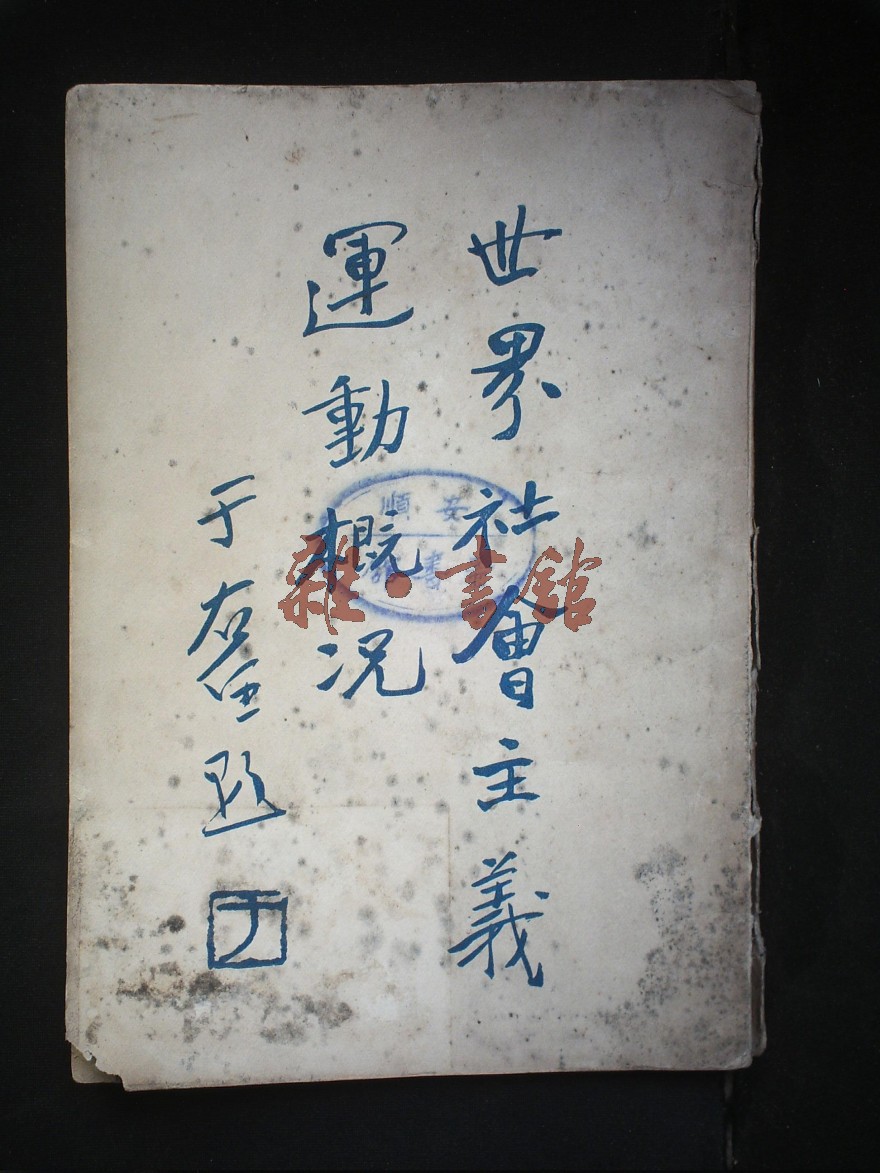 世界社會主義
運動概况
于右任題
安順
雜·書館